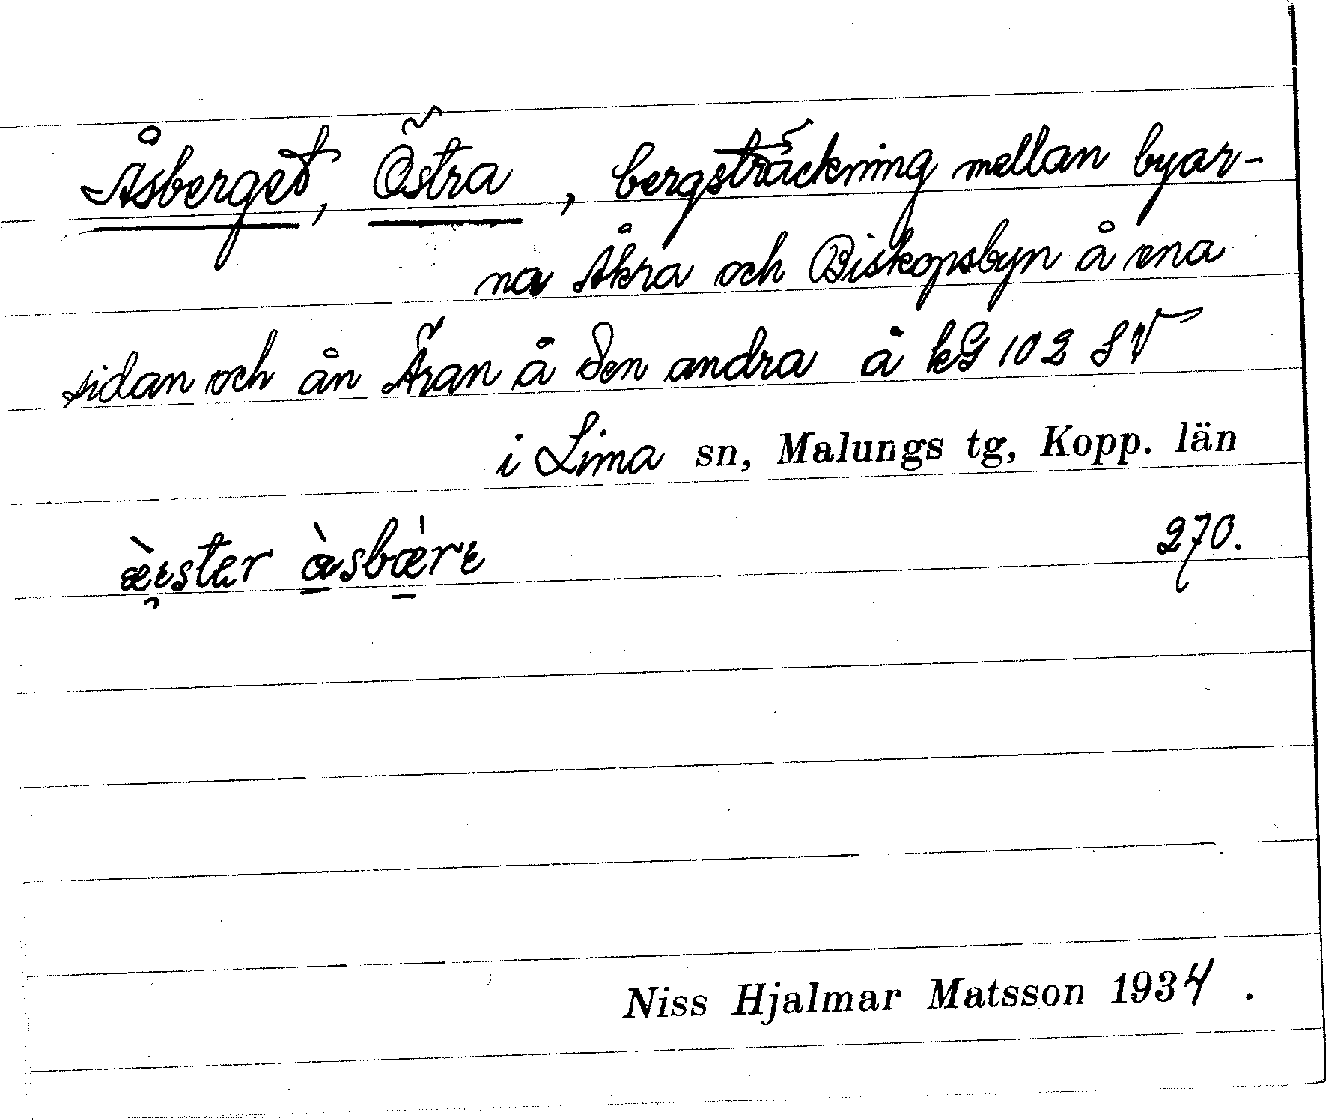 Åsberget, Östra, bergsträckning mellan byar-
na Åkra och Biskopsbyn å ena
sidan och ån Äran å den andra å kG 102 SV
i Lima sn, Malungs tg, Kopp. län
270.
Niss Hjalmar Matsson 1934.